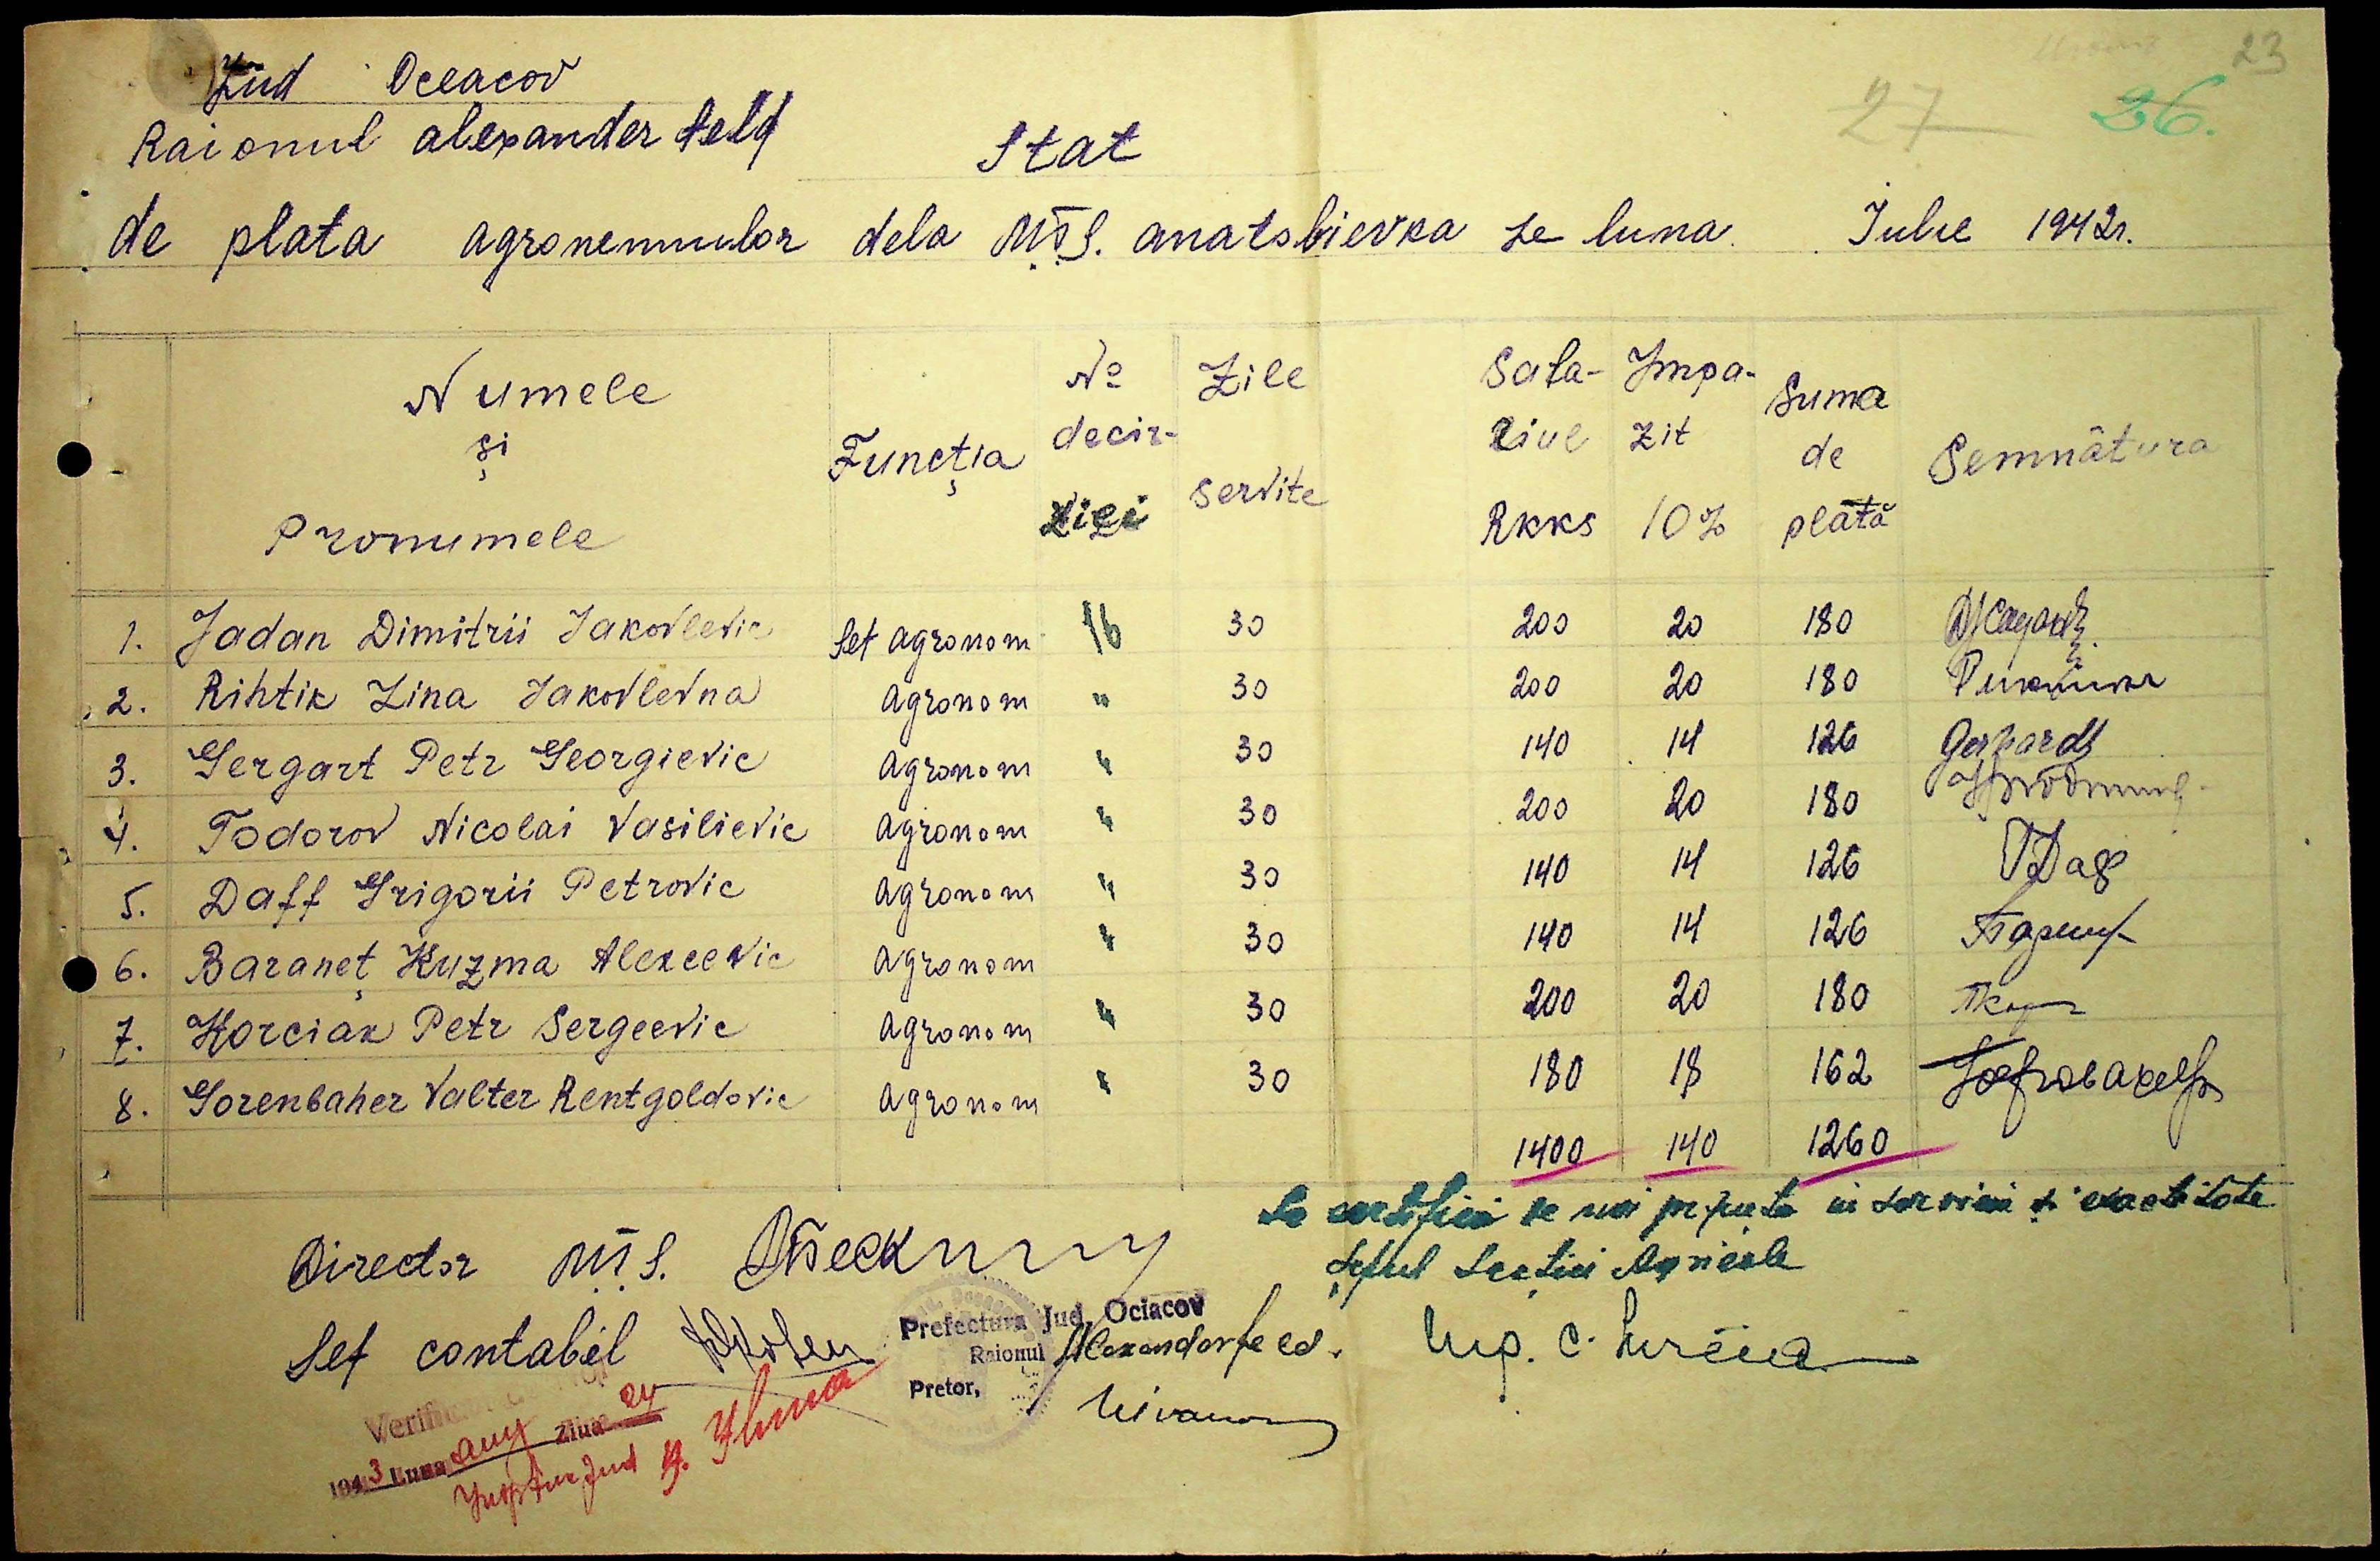 23
27 26.
Jud Oceacov
Raionul alexander feld
Stat
de plata agronemnulor dela M.T.S. anatolievka pe luna Iulie 1942
Numele și Pronumele Funcția № decir-ziei Zile servite Sala-riul Rkks Impo-zit 10% Suma de plată Semnătura
1. Jadan Dimitrii Iakovlevic Sef agronom 16 30 200 20 180
2. Rihtik Zina Iakovlevna agronom " 30 200 20 180
3. Gergart Petr Georgievic agronom " 30 140 14 126 Gerhardt
4. Todorov Nicolai Vasilievic agronom " 30 200 20 180
5. Daff Grigorii Petrovic agronom " 30 140 14 126 ГДаф
6. Baraneț Kuzma Alexeevic agronom " 30 140 14 126
7. Korciak Petr Sergeevic agronom " 30 200 20 180
8. Gorenbaher Valter Rentgoldovic agronom " 30 180 18 162
1400 140 1260
Se certifica de noi prezenta in servici si exactitate
Șeful Secției Agricole
Director M.T.S.
Sef contabil
Prefectura Jud. Ociacov
Raionul Alexandorfeld.
Pretor,
Ing. C.
Ziua 24
1943 Luna aug